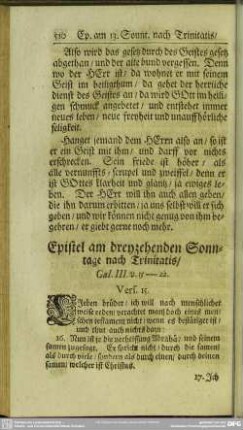 510 Ep. am 13. Sonnt. nach Trinitatis/
Also wird das gesetz durch des Geistes gesetz
abgethan/ und der alte bund vergessen. Denn
wo der HErr ist/ da wohnet er mit seinem
Geist im heiligthum/ da gehet der herrliche
dienst des Geistes an/ da wird GOtt im heili-
gen schmuck angebetet/ und entstehet immer
neues leben/ neue freyheit und unauffhörliche
seligkeit.
Hanget jemand dem HErrn also an/ so ist
er ein Geist mit ihm/ und darff vor nichts
erschrecken. Sein friede ist höher/ als
alle vernunffts-scrupel und zweiffel/ denn er
ist GOttes klarheit und glantz/ ja ewiges le-
ben. Der HErr will ihn auch allen geben/
die ihn darum erbitten/ ja uns selbst will er sich
geben/ und wir können nicht genug von ihm be-
gehren/ er giebt gerne noch mehr.
Epistel am dreyzehenden Sonn-
tage nach Trinitatis/
Gal. III. v. 15—22.
Vers. 15.
LIeben brüder/ ich will nach menschlicher
weise reden/ verachtet man doch eines men-
schen testament nicht/ wenn es bestätiget ist/
und thut auch nichts davu:
16. Nun ist je die verheissung Abrahä/ und seinem
samen zugesagt. Er spricht nicht/ durch die samen/
als durch viele/ sondern als durch einen/ durch deinen
samen/ welcher ist Christus.
17. Ich